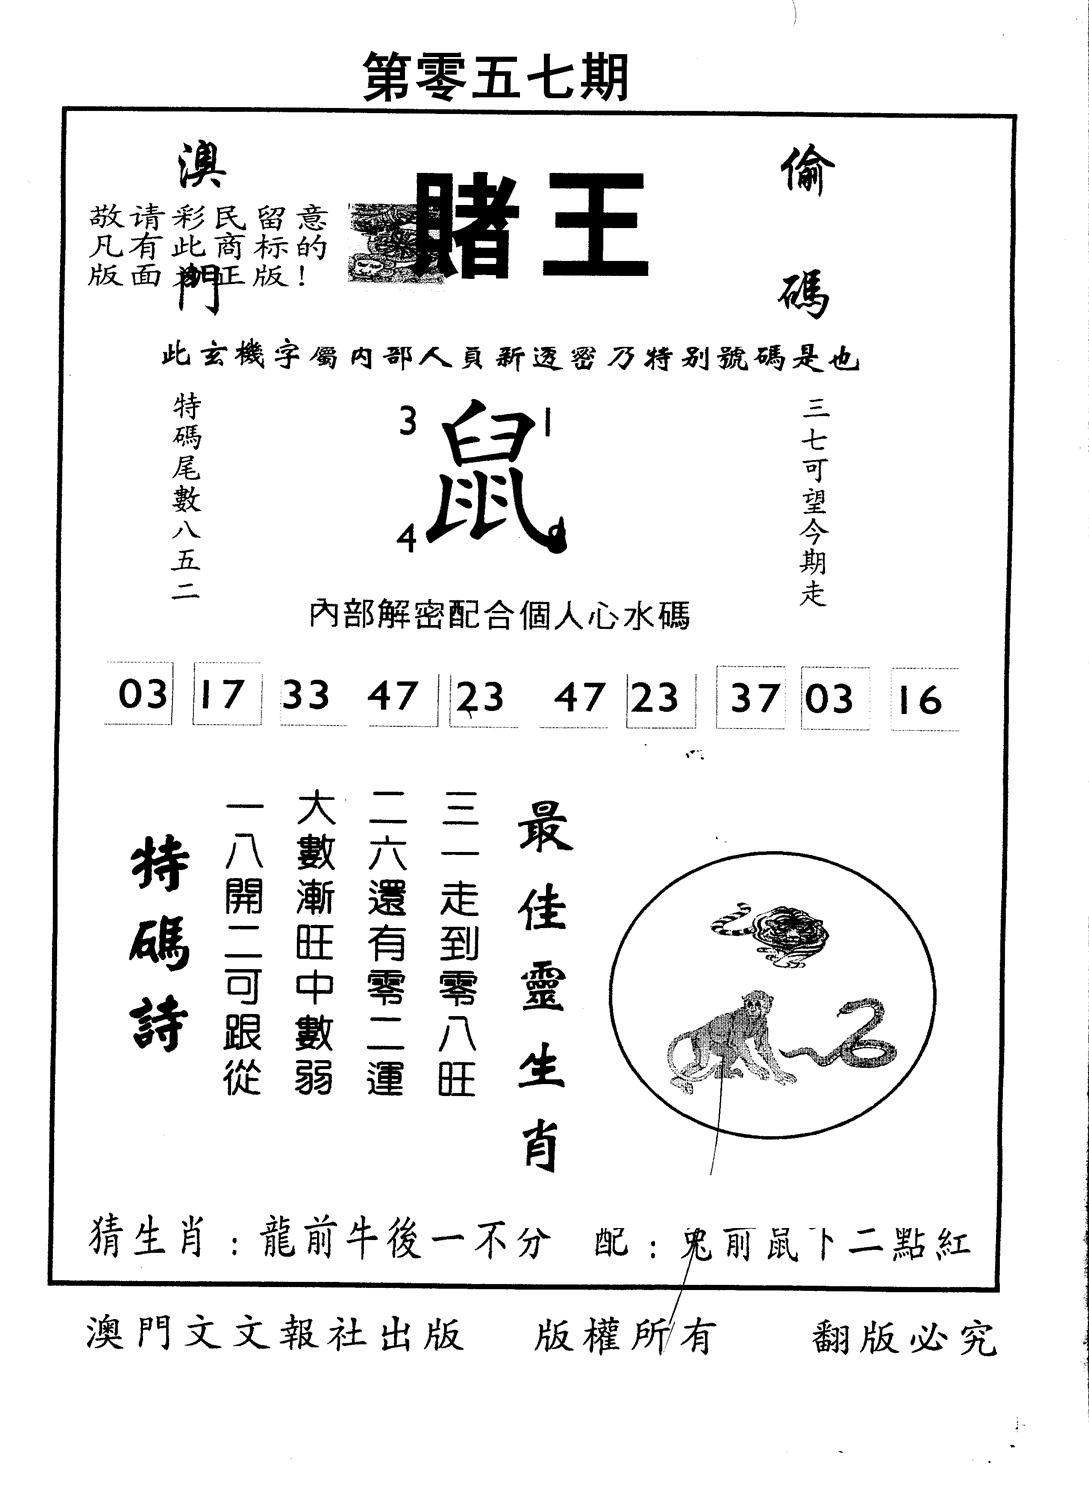 第零五七期
澳門
賭王
偷碼
敬请彩民留意
凡有此商标的
版面为正版！
此玄機字屬内部人員新透密乃特别號碼是也
特碼尾數八五二
3
1
鼠
4
三七可望今期走
內部解密配合個人心水碼
03 17 33 47 23 47 23 37 03 16
最佳靈生肖
三一走到零八旺
二六還有零二運
大數漸旺中數弱
一八開二可跟從
特碼詩
猜生肖：龍前牛後一不分 配：兔前鼠下二點紅
澳門文文報社出版 版權所有 翻版必究